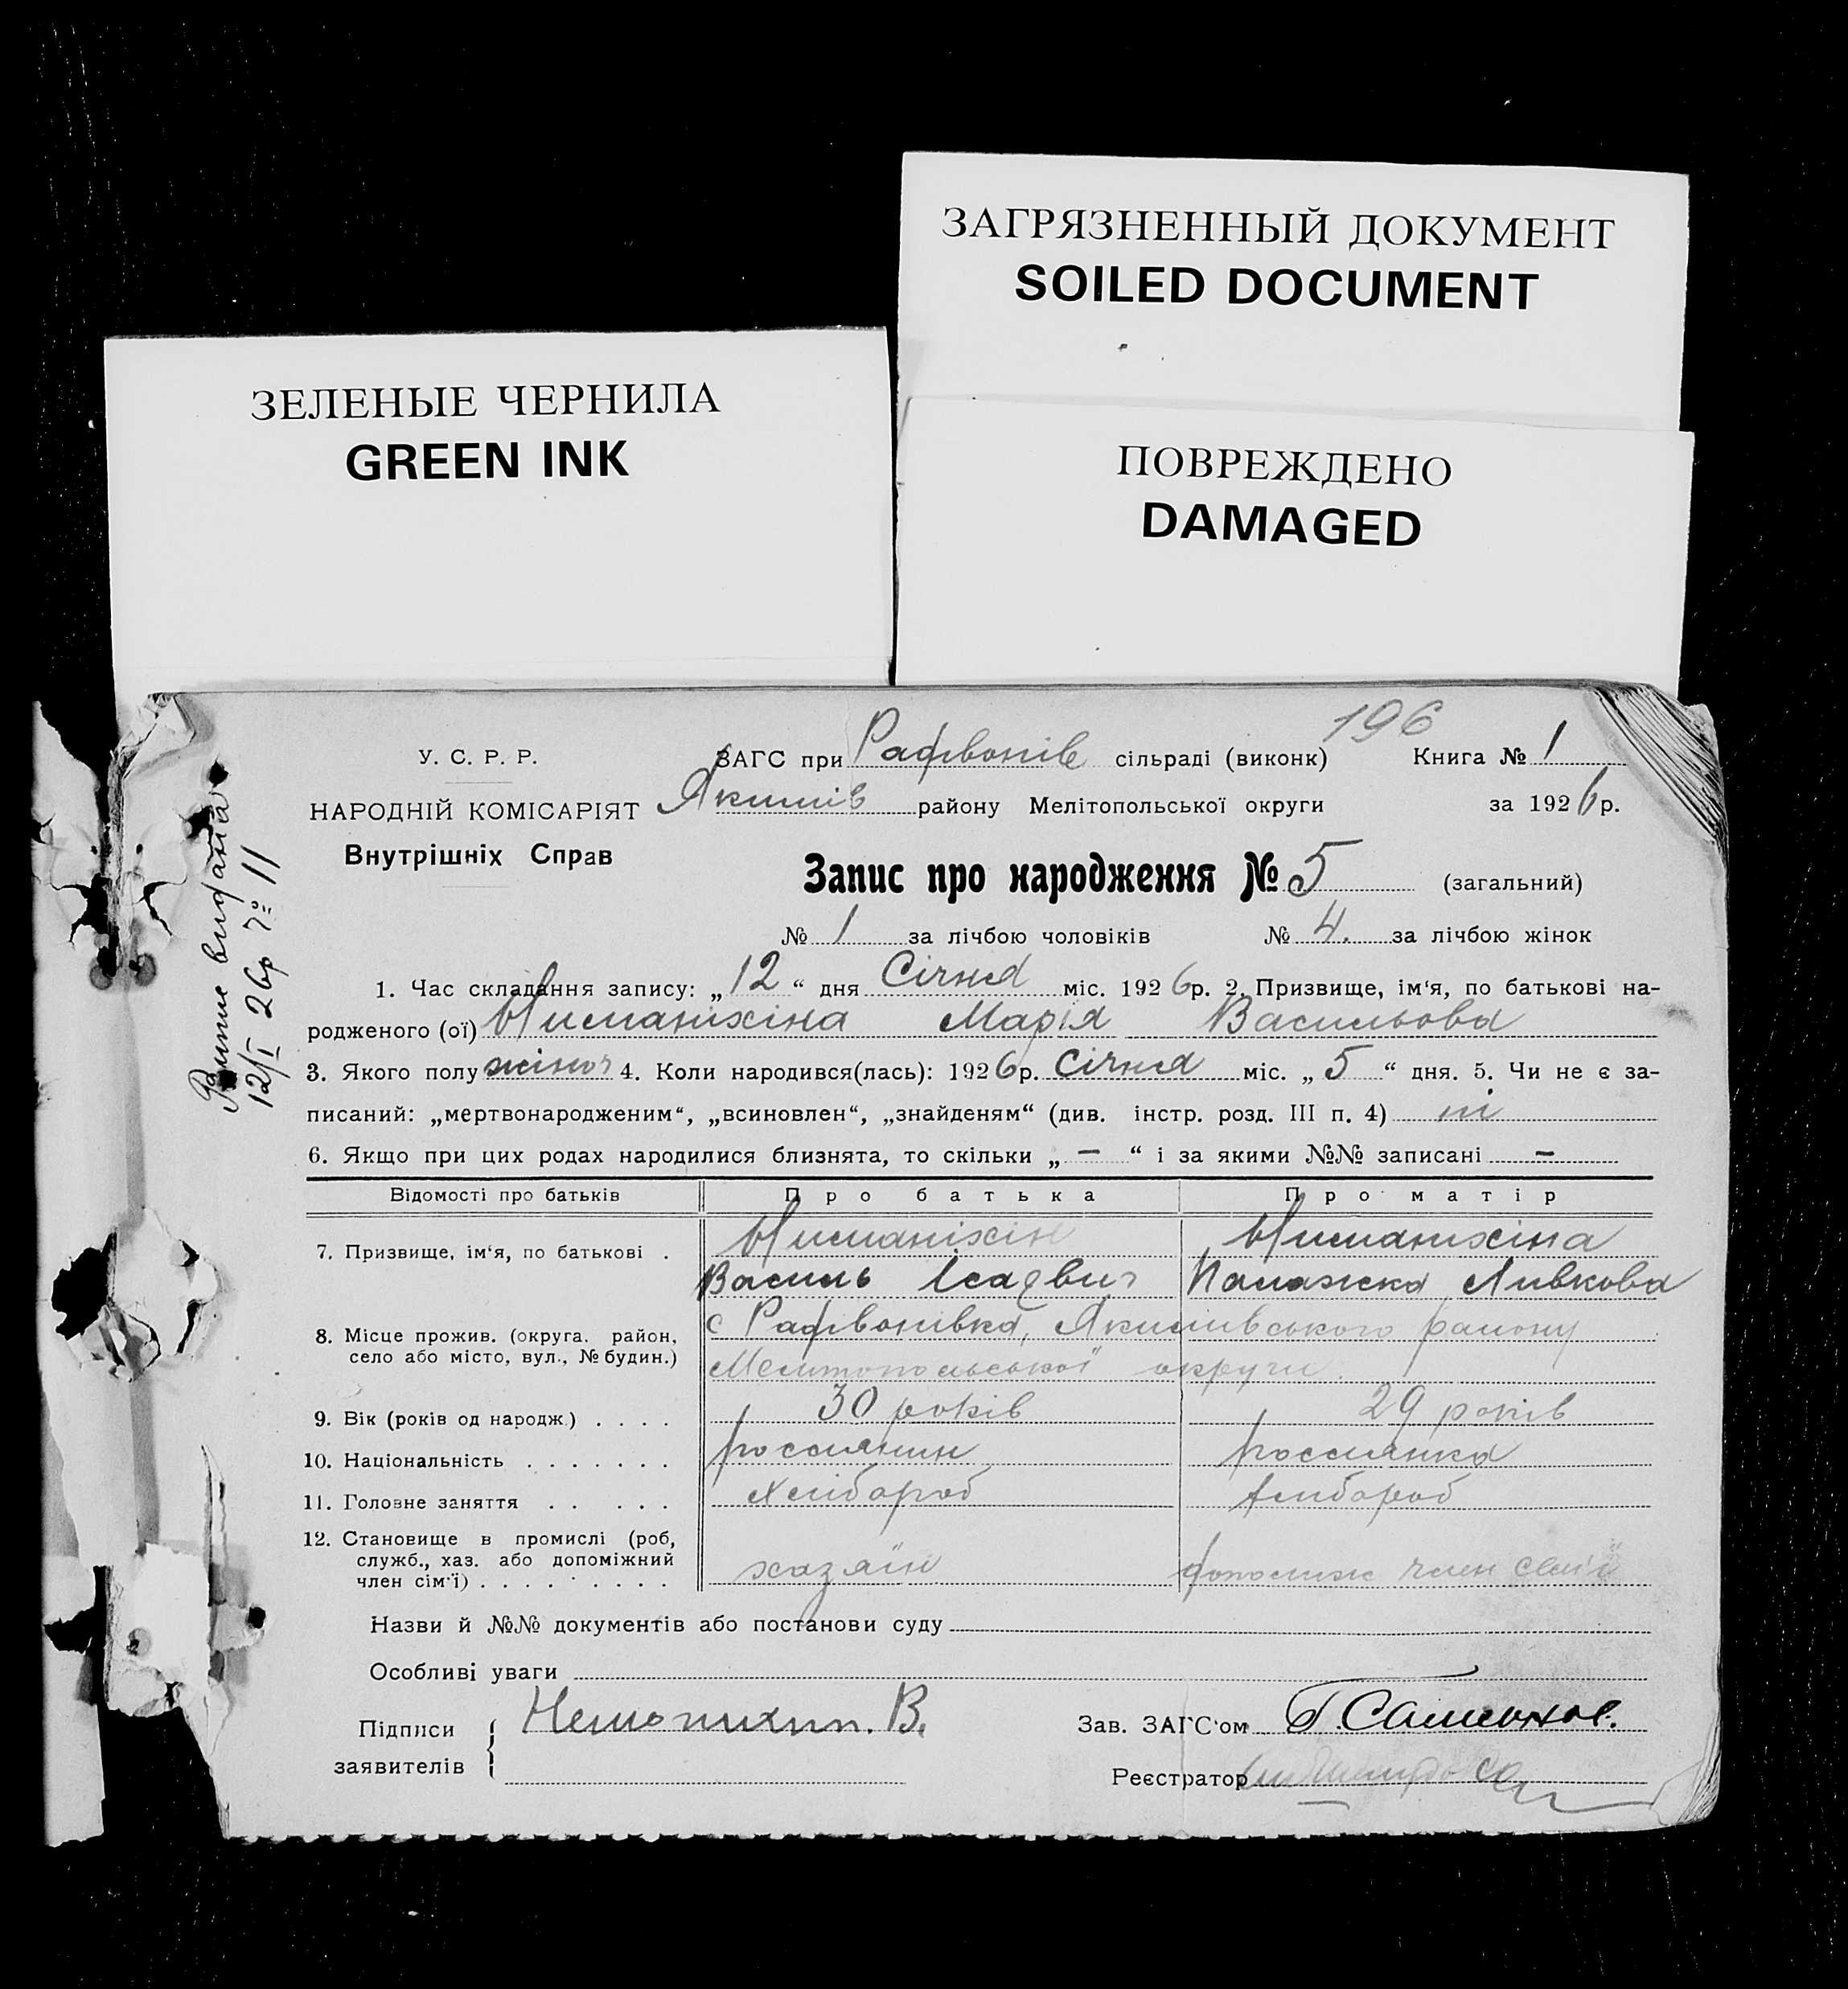 ЗАГРЯЗНЕННЫЙ ДОКУМЕНТ
SOILED DOCUMENT
ЗЕЛЕНЫЕ ЧЕРНИЛА
GREEN INK
ПОВРЕЖДЕНО
DAMAGED
196
У. С. Р. Р. ЗАГС при сільраді (виконк) Книга № 1
НАРОДНІЙ КОМІСАРІЯТ Якимів району Мелітопольської округи за 1926 р.
Внутрішніх Справ
Запис про народження № 5 (загальний)
№ 1 за лічбою чоловіків № 4. за лічбою жінок
1. Час складання запису: „12“ дня Січня міс. 1926 р. 2. Призвище, ім‘я, по батькові на-
родженого (ої) Марія Васильова
3. Якого полу жіноч 4. Коли народився(лась): 1926 р. Січня міс. „5“ дня. 5. Чи не є за-
писаний: „мертвонародженим“, „всиновлен“, „знайденям“ (див. інстр. розд. III п. 4) ні
6. Якщо при цих родах народилися близнята, то скільки „ — “ і за якими №№ записані —
Відомості про батьків Про батька Про матір
7. Призвище, ім‘я, по батькові .
Василь Ісаєвич Палажка Ливкова
8. Місце прожив. (округа. район, с Якимівського району
село або місто, вул., № будин.) Мелітопольської округи.
9. Вік (років од народж.) . . . . 30 років 29 років
10. Національність . . . . . . . россиянин россиянка
11. Головне заняття . . . . . хлібороб хлібороб
12. Становище в промислі (роб,
служб., хаз. або допоміжний
член сім‘ї) . . . . . . . . . хазяїн допоміж член сем'ї
Назви й №№ документів або постанови суду
Особливі уваги
Підписи В. Зав. ЗАГС‘ом
заявителів
Реєстратор
видана
12/I 26р № 11